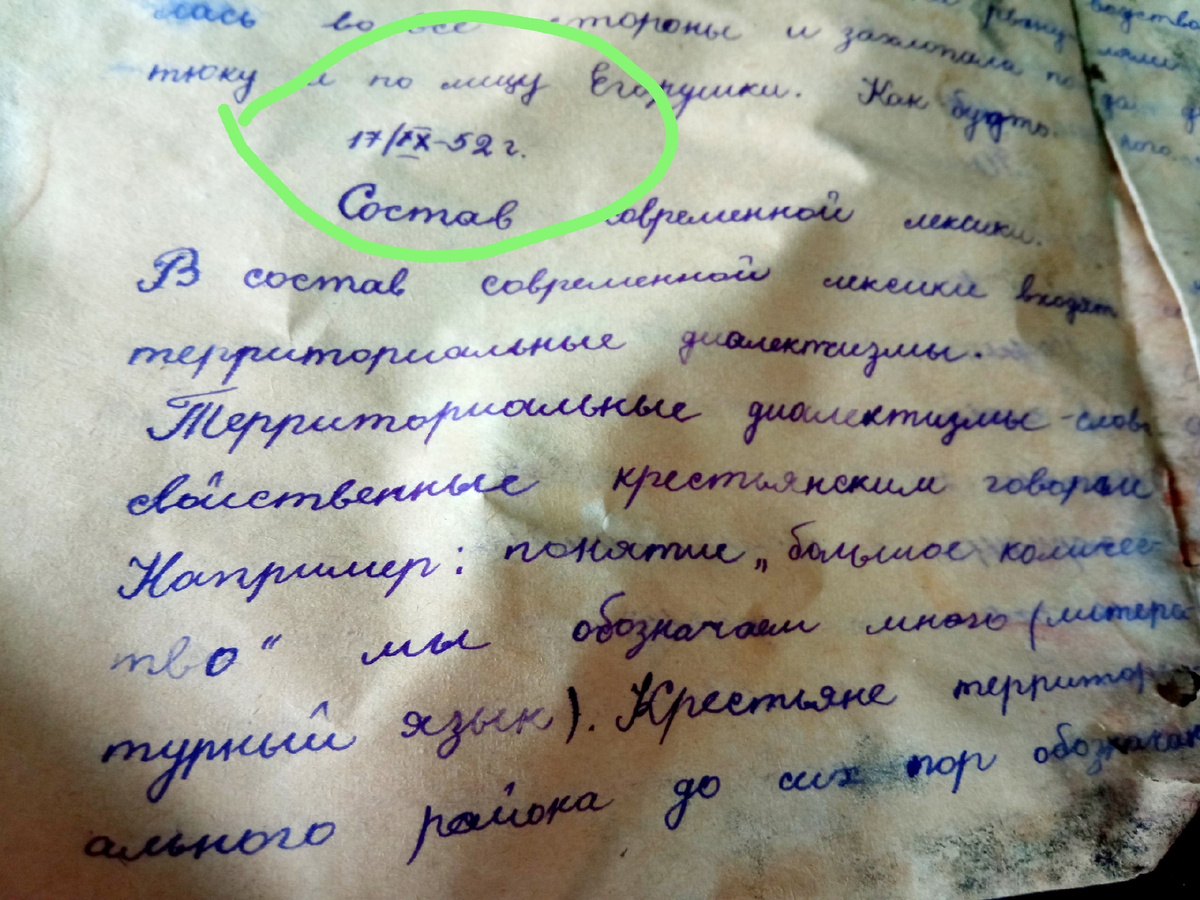 лась во все стороны и захлопала по
тюку и по лицу Егорушки. Как будто
17/IX-52 г.
Состав современной лексики.
В состав современной лексики входят
территориальные диалектизмы.
Территориальные диалектизмы - слова
свойственные крестьянским говорам
Например: понятие „большое количес-
тво“ мы обозначаем много (литера
турный язык). Крестьяне территори
ального района до сих пор обозначают